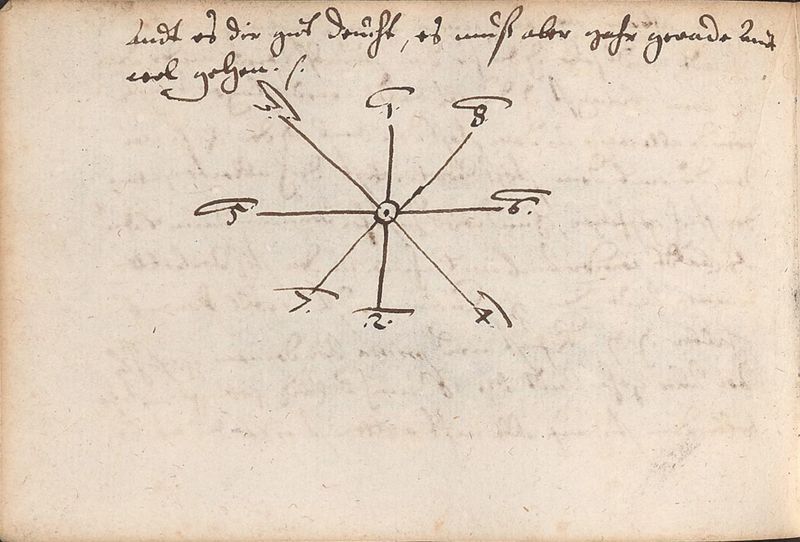 andt es dir gut deucht, es muß aber gahr gerade undt
wol gehen. /.
3. 1. 8.
5. 6.
7. 2. 4.